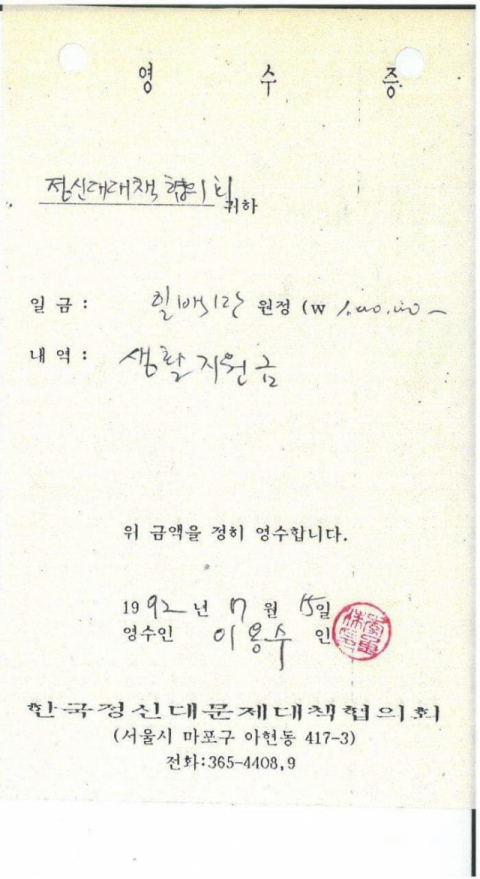 영 수 증
정신대대책협의회 귀하
일 금 : 일백만 원정 (W 1,000,000 -
내 역 : 생활지원금
위 금액을 정히 영수합니다.
1992년 7월 15일
영수인 이용수 인
한국정신대문제대책협의회
(서울시 마포구 아현동 417-3)
전화:365-4408,9